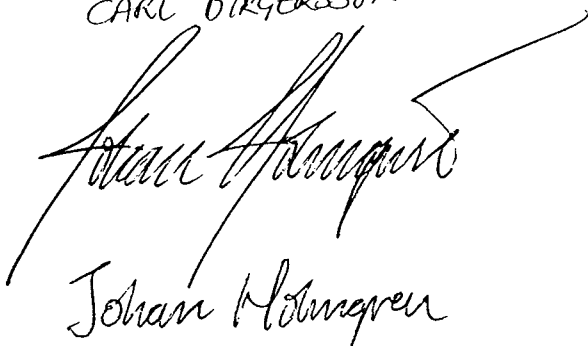 CARL BIRGERSSON
Johan
Johan Holmgren